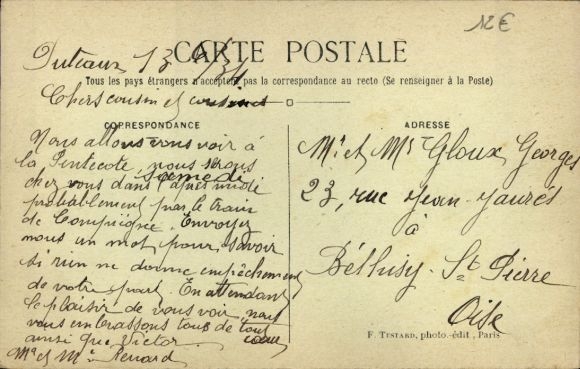 12€
Puteaux 13
CARTE POSTALE
Tous les pays étrangers n'acceptent pas la correspondance au recto (Se renseigner à la Poste)
Chers cousin et cousine
CORRESPONDANCE
Nous allons vous voir à
la Pentecote, nous serons
samedi
chez vous dans l'après midi
probablement par le train
de Compiègne. Envoyez
nous un mot pour savoir
si rien ne donne empêchement
de votre part. En attendant
le plaisir de vous voir, nous
vous embrassons tous de tout
coeur
ainsi que Victor.
Mr et Me Renard
ADRESSE
Mr et Me Gloux Georges
23, rue Jean-Jaurès
à
Béthisy-St Pierre
Oise
F. TUSTARD, photo.-édit, Paris